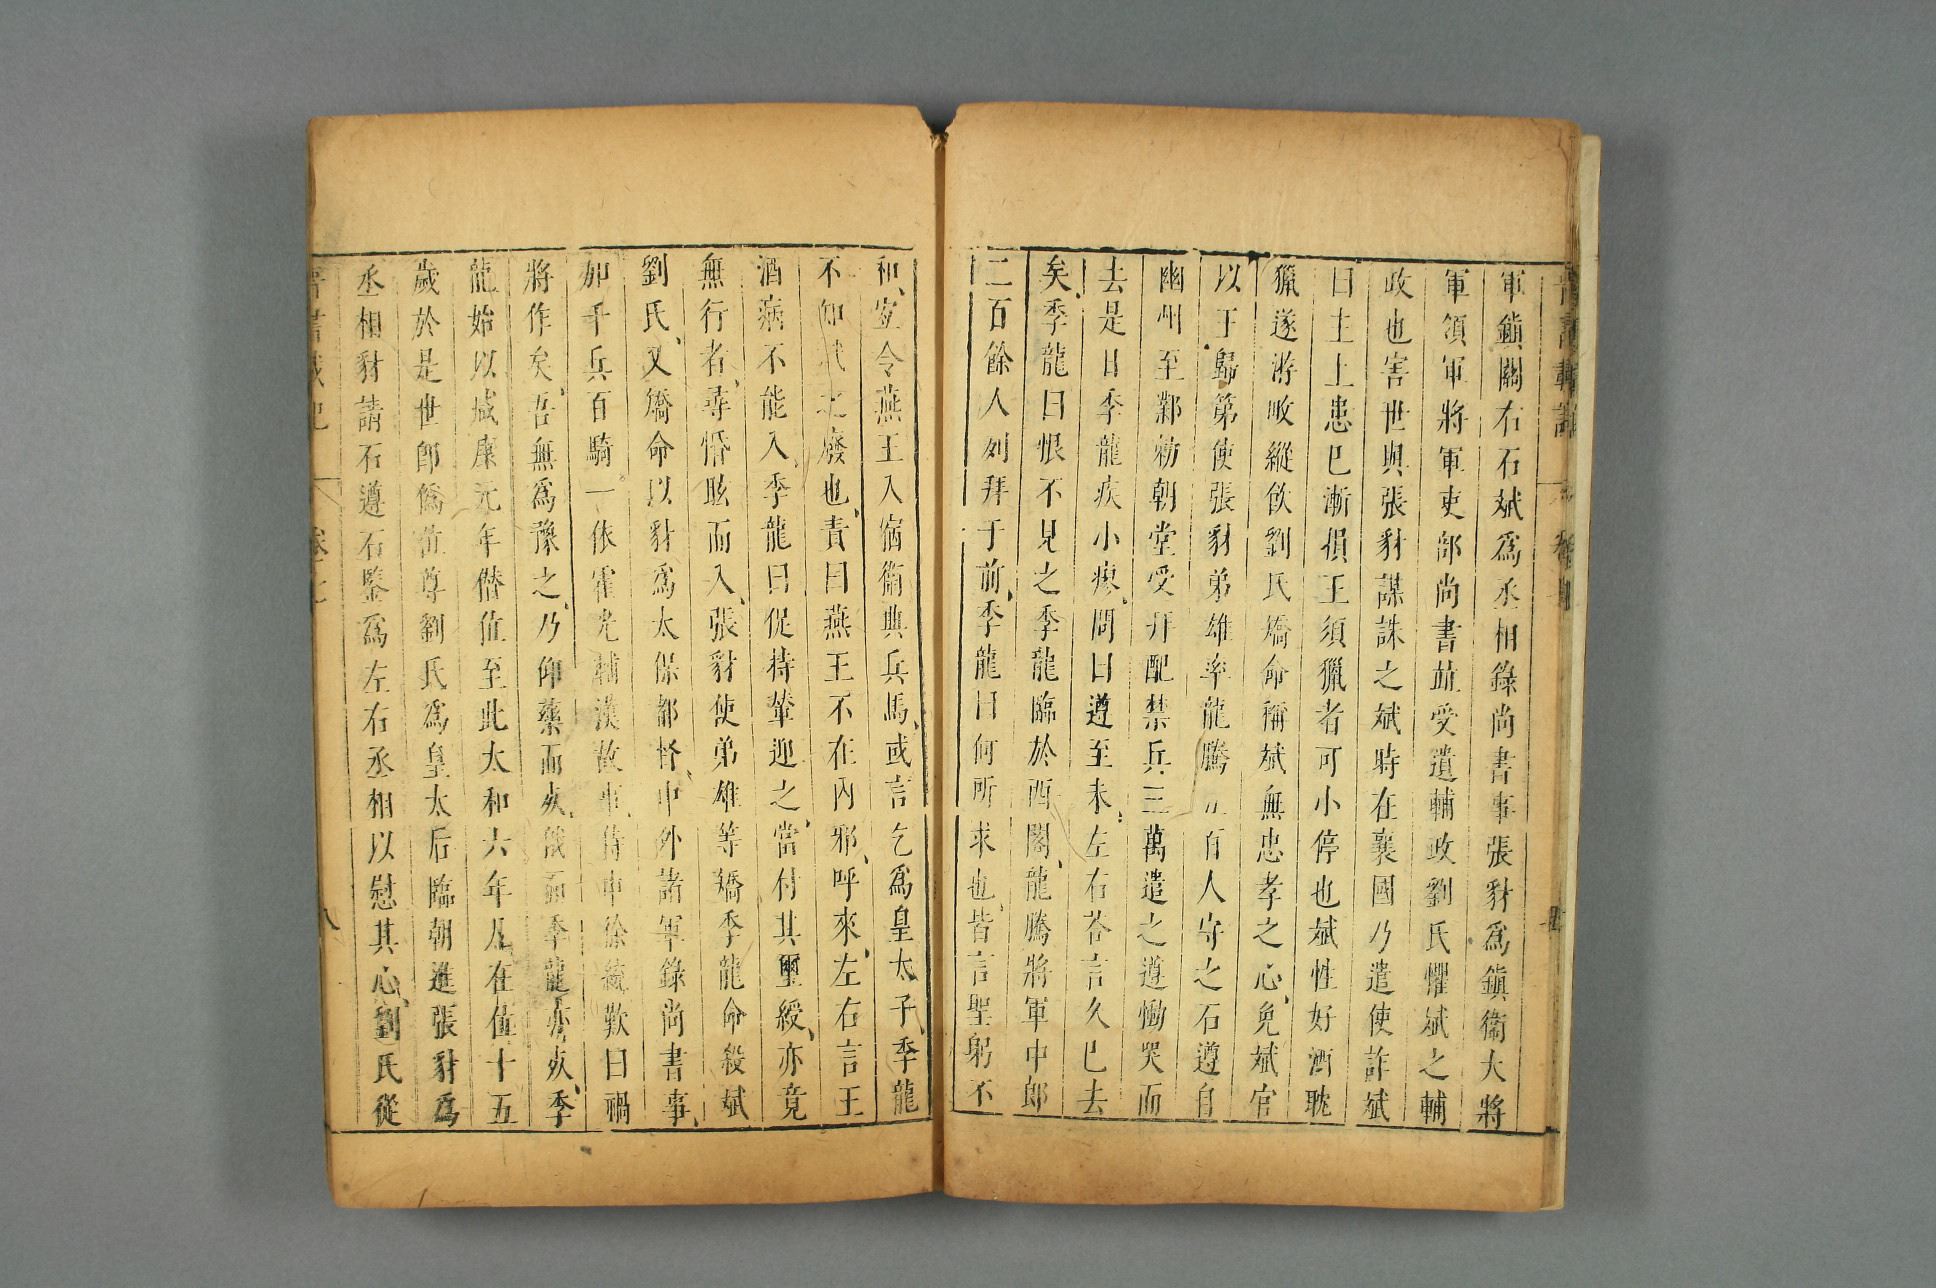 軍鎮關右石斌爲丞相錄尚書事張豺爲鎮衞大將
軍領軍將軍吏部尚書並受遺輔政劉氏懼斌之輔
政也害世與張豺謀誅之斌時在襄國乃遣使詐斌
曰主上患巳漸損王須獵者可小停也斌性好酒耽
獵遂游畋縱飲劉氏矯命稱斌無忠孝之心免斌官
以王歸第使張豺弟雄率龍騰五百人守之石遵自
幽州至鄴勅朝堂受拜配禁兵三萬遣之遵慟哭而
去是日季龍疾小瘳問曰遵至未左右荅言久巳去
矣季龍曰恨不見之季龍臨於西閣龍騰將軍中郎
二百餘人列拜于前季龍曰何所求也皆言聖躬不
和宜令燕王入宿衞典兵馬或言乞爲皇太子季龍
不知斌之廢也責曰燕王不在內邪呼來左右言王
酒病不能入季龍曰促持輦迎之當付其璽綬亦竟
無行者尋惛眩而入張豺使弟雄等矯季龍命殺斌
劉氏又矯命以豺爲太保都督中外諸軍錄尚書事
加千兵百騎一依霍光輔漢故事侍中徐統歎曰禍
將作矣吾無爲豫之乃仰藥而死俄而季龍亦死季
龍始以咸康元年僭位至此太和六年凡在位十五
歲於是世卽僞位尊劉氏爲皇太后臨朝進張豺爲
丞相豺請石遵石鑒爲左右丞相以慰其心劉氏從
晉書載記 卷七 八